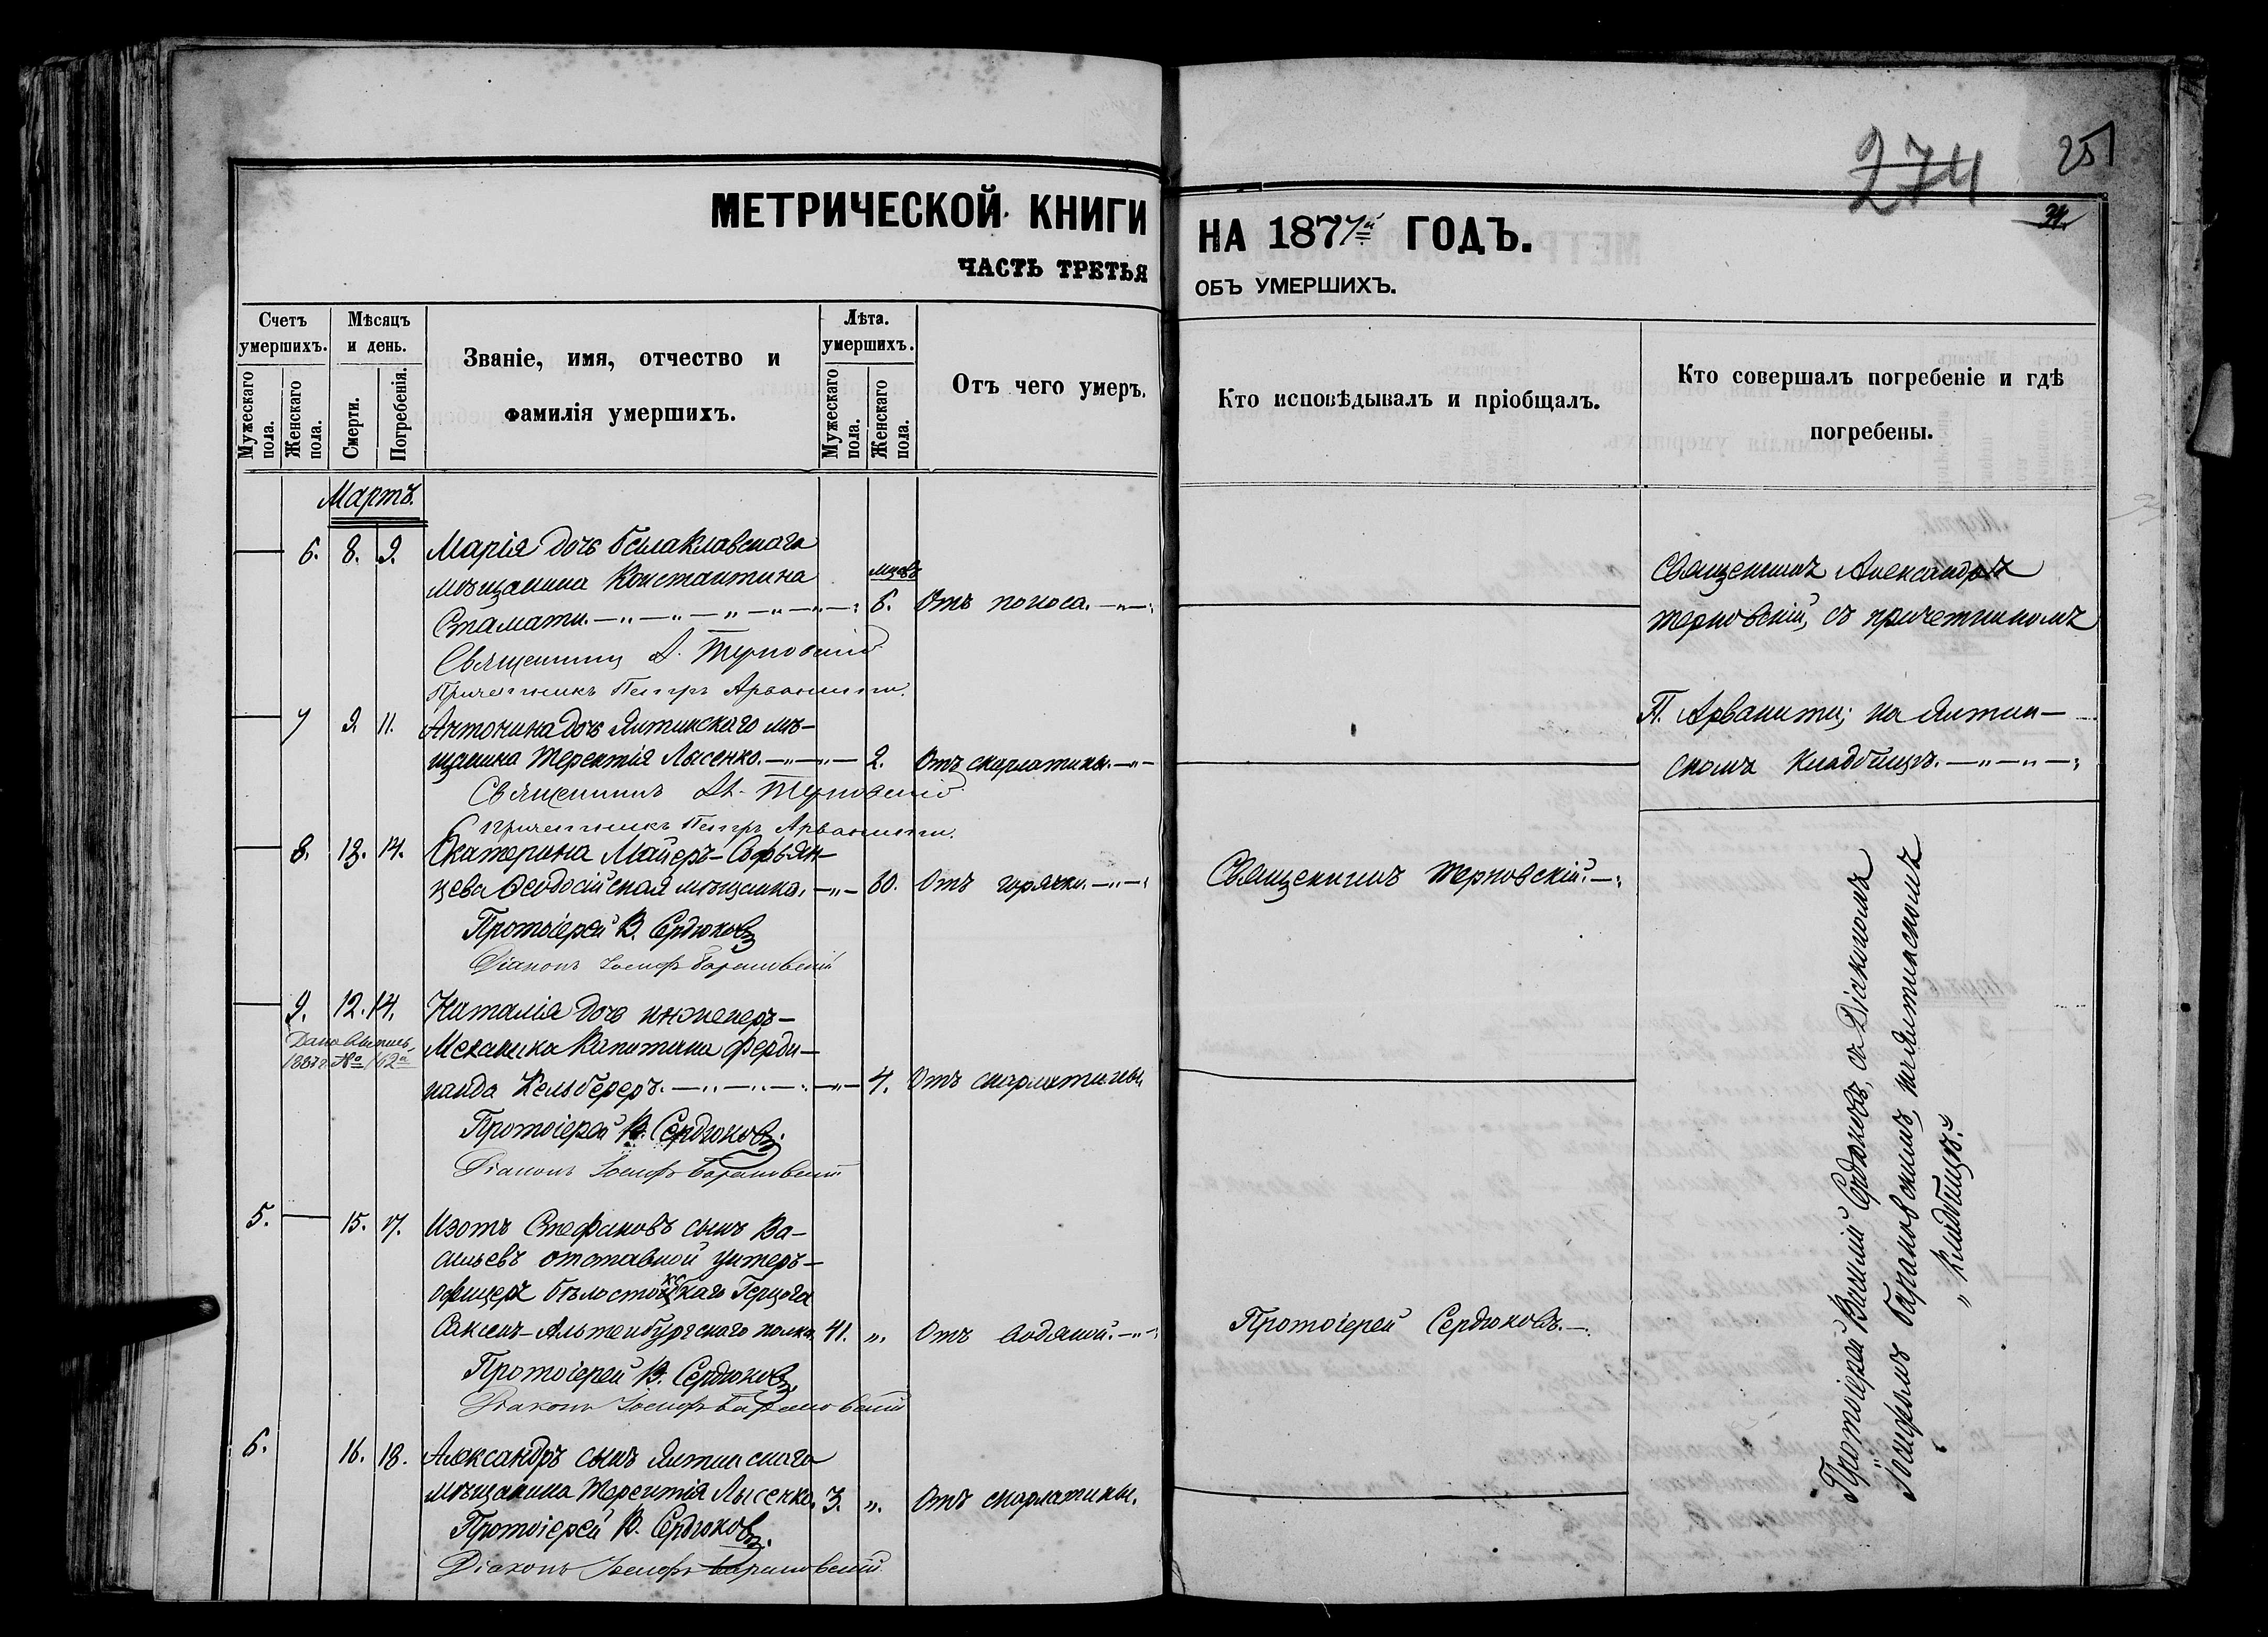 274
251
34.
МЕТРИЧЕСКОЙ КНИГИ
ЧАСТЬ ТРЕТЬЯ
НА 1877й ГОДЪ.
ОБЪ УМЕРШИХЪ.
Счетъ умершихъ.
Мужескаго пола.
Женскаго пола.
Мѣсяцъ и день.
Смерти.
Погребенія.
Званіе, имя, отчество и
фамилія умершихъ.
Лѣта. умершихъ.
Мужескаго пола.
Женскаго пола.
Отъ чего умеръ.
Кто исповѣдывалъ и пріобщалъ.
Кто совершалъ погребеніе и гдѣ
погребены.
Мартъ.
6. 8. 9. Марія дочь балаклавскаго
мѣщанина Константина мцвъ
Стамати. 6. Отъ поноса.
Священникъ А. Терновскій
Причетникъ Петръ Арванити.
Священникъ Александръ
Терновскій, съ причетникомъ
П. Арванити; на Ялтин-
скомъ кладбищѣ.
7 9. 11. Антонина дочь Ялтинскаго мѣ-
щанина Терентія Лысенко. 2. Отъ скарлатины.
Священникъ Ал. Терновскій
Причетникъ Петръ Арванити.
8. 13. 14. Екатерина Майеръ-Софьян-
цева Ѳеодосійская мѣщанка. 80. Отъ горячки. Священникъ Терновскій.
Протоіерей В. Сердюковъ
Діаконъ Іосифъ Барановскій
9. 12. 14. Наталія дочь инженеръ-
Механика Капитана Ферди-
нанда Кельберъ. 4. Отъ скарлатины.
Дана выпись
1887 г. № 162й
Протоіерей В. Сердюковъ.
Діаконъ Іосифъ Барановскій
5. 15. 17. Изотъ Стефановъ сынъ Ва-
сильевъ отставной унтеръ-
офицеръ бѣлостокскаго Герцога
Саксенъ-Альтенбургскаго полка. 41. „ Отъ водяной. Протоіерей Сердюковъ.
Протоіерей В. Сердюковъ
Діаконъ Іосифъ Барановскій
6. 16. 18. Александръ сынъ Ялтинскаго
мѣщанина Терентія Лысенко. 3. „ Отъ скарлатины.
Протоіерей В. Сердюковъ.
Діаконъ Іосифъ Барановскій
Протоіерей Василій Сердюковъ, съ Діакономъ
Іосифомъ Барановскимъ, на Ялтинскомъ
„ Кладбищѣ.